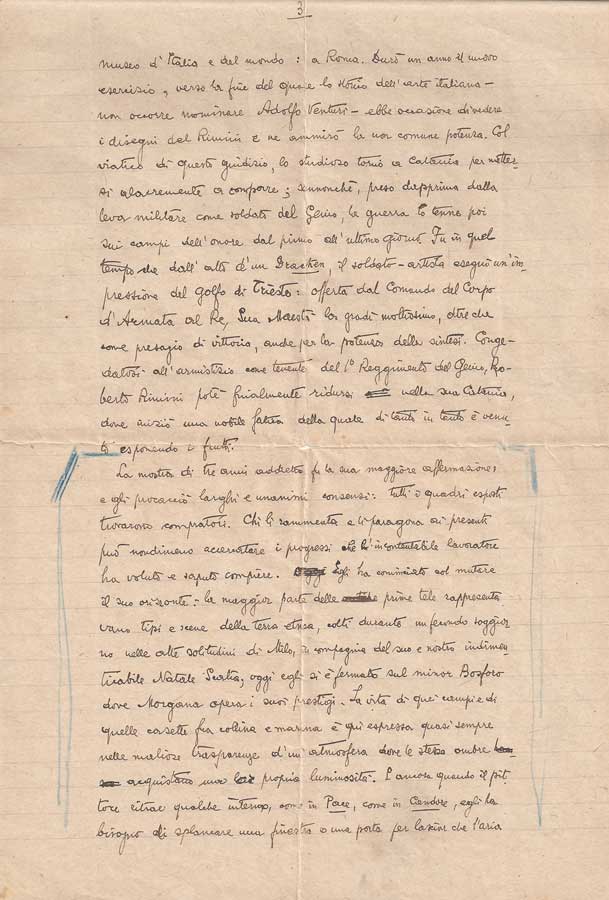 3
museo d'Italia e del mondo: a Roma. Durò un anno il nuovo
esercizio, verso la fine del quale lo storico dell'arte italiana -
non occorre nominare Adolfo Venturi - ebbe occasione di vedere
i disegni del Rimini e ne ammirò la non comune potenza. Col
viatico di questo giudizio, lo studioso tornò a Catania per metter-
si alacremente a comporre; sennonché, preso dapprima dalla
leva militare come soldato del Genio, la guerra lo tenne poi
sui campi dell'onore dal primo all'ultimo giorno. Fu in quel
tempo che dall'alto d'un Drachen, il soldato-artista eseguì un'im-
pressione del golfo di Trieste: offerta dal Comando del Corpo
d'Armata al Re, Sua Maestà la gradì moltissimo, oltre che
come presagio di vittoria, anche per la potenza della sintesi. Conge-
datosi all'armistizio come tenente del 1° Reggimento del Genio, Ro-
berto Rimini poté finalmente ridursi nella sua Catania,
dove iniziò una nobile fatica della quale di tanto in tanto è venu-
to esponendo i frutti.
La mostra di tre anni addietro fu la sua maggiore affermazione,
e gli procacciò larghi e unanimi consensi: tutti i quadri esposti
trovarono compratori. Chi li rammenta e li paragona ai presenti
può nondimeno accertare i progressi che l'incontentabile lavoratore
ha voluto e saputo compiere. Egli ha cominciato col mutare
il suo orizzonte: la maggior parte delle prime tele rappresenta
vano tipi e scene della terra etnea, colti durante un fecondo soggior
no nelle alte solitudini di Milo, in compagnia del suo e nostro indimen-
ticabile Natale Scalia; oggi egli si è fermato sul minor Bosforo
dove Morgana opera i suoi prestigi. La vita di quei campi e di
quelle casette fra collina e marina è qui espressa quasi sempre
nelle maliose trasparenze d'un'atmosfera dove le stesse ombre
acquistano una lor propria luminosità. E ancora quando il pit-
tore ritrae qualche interno, come in Pace, come in Candore, egli ha
bisogno di spalancare una finestra o una porta per lasciar che l'aria